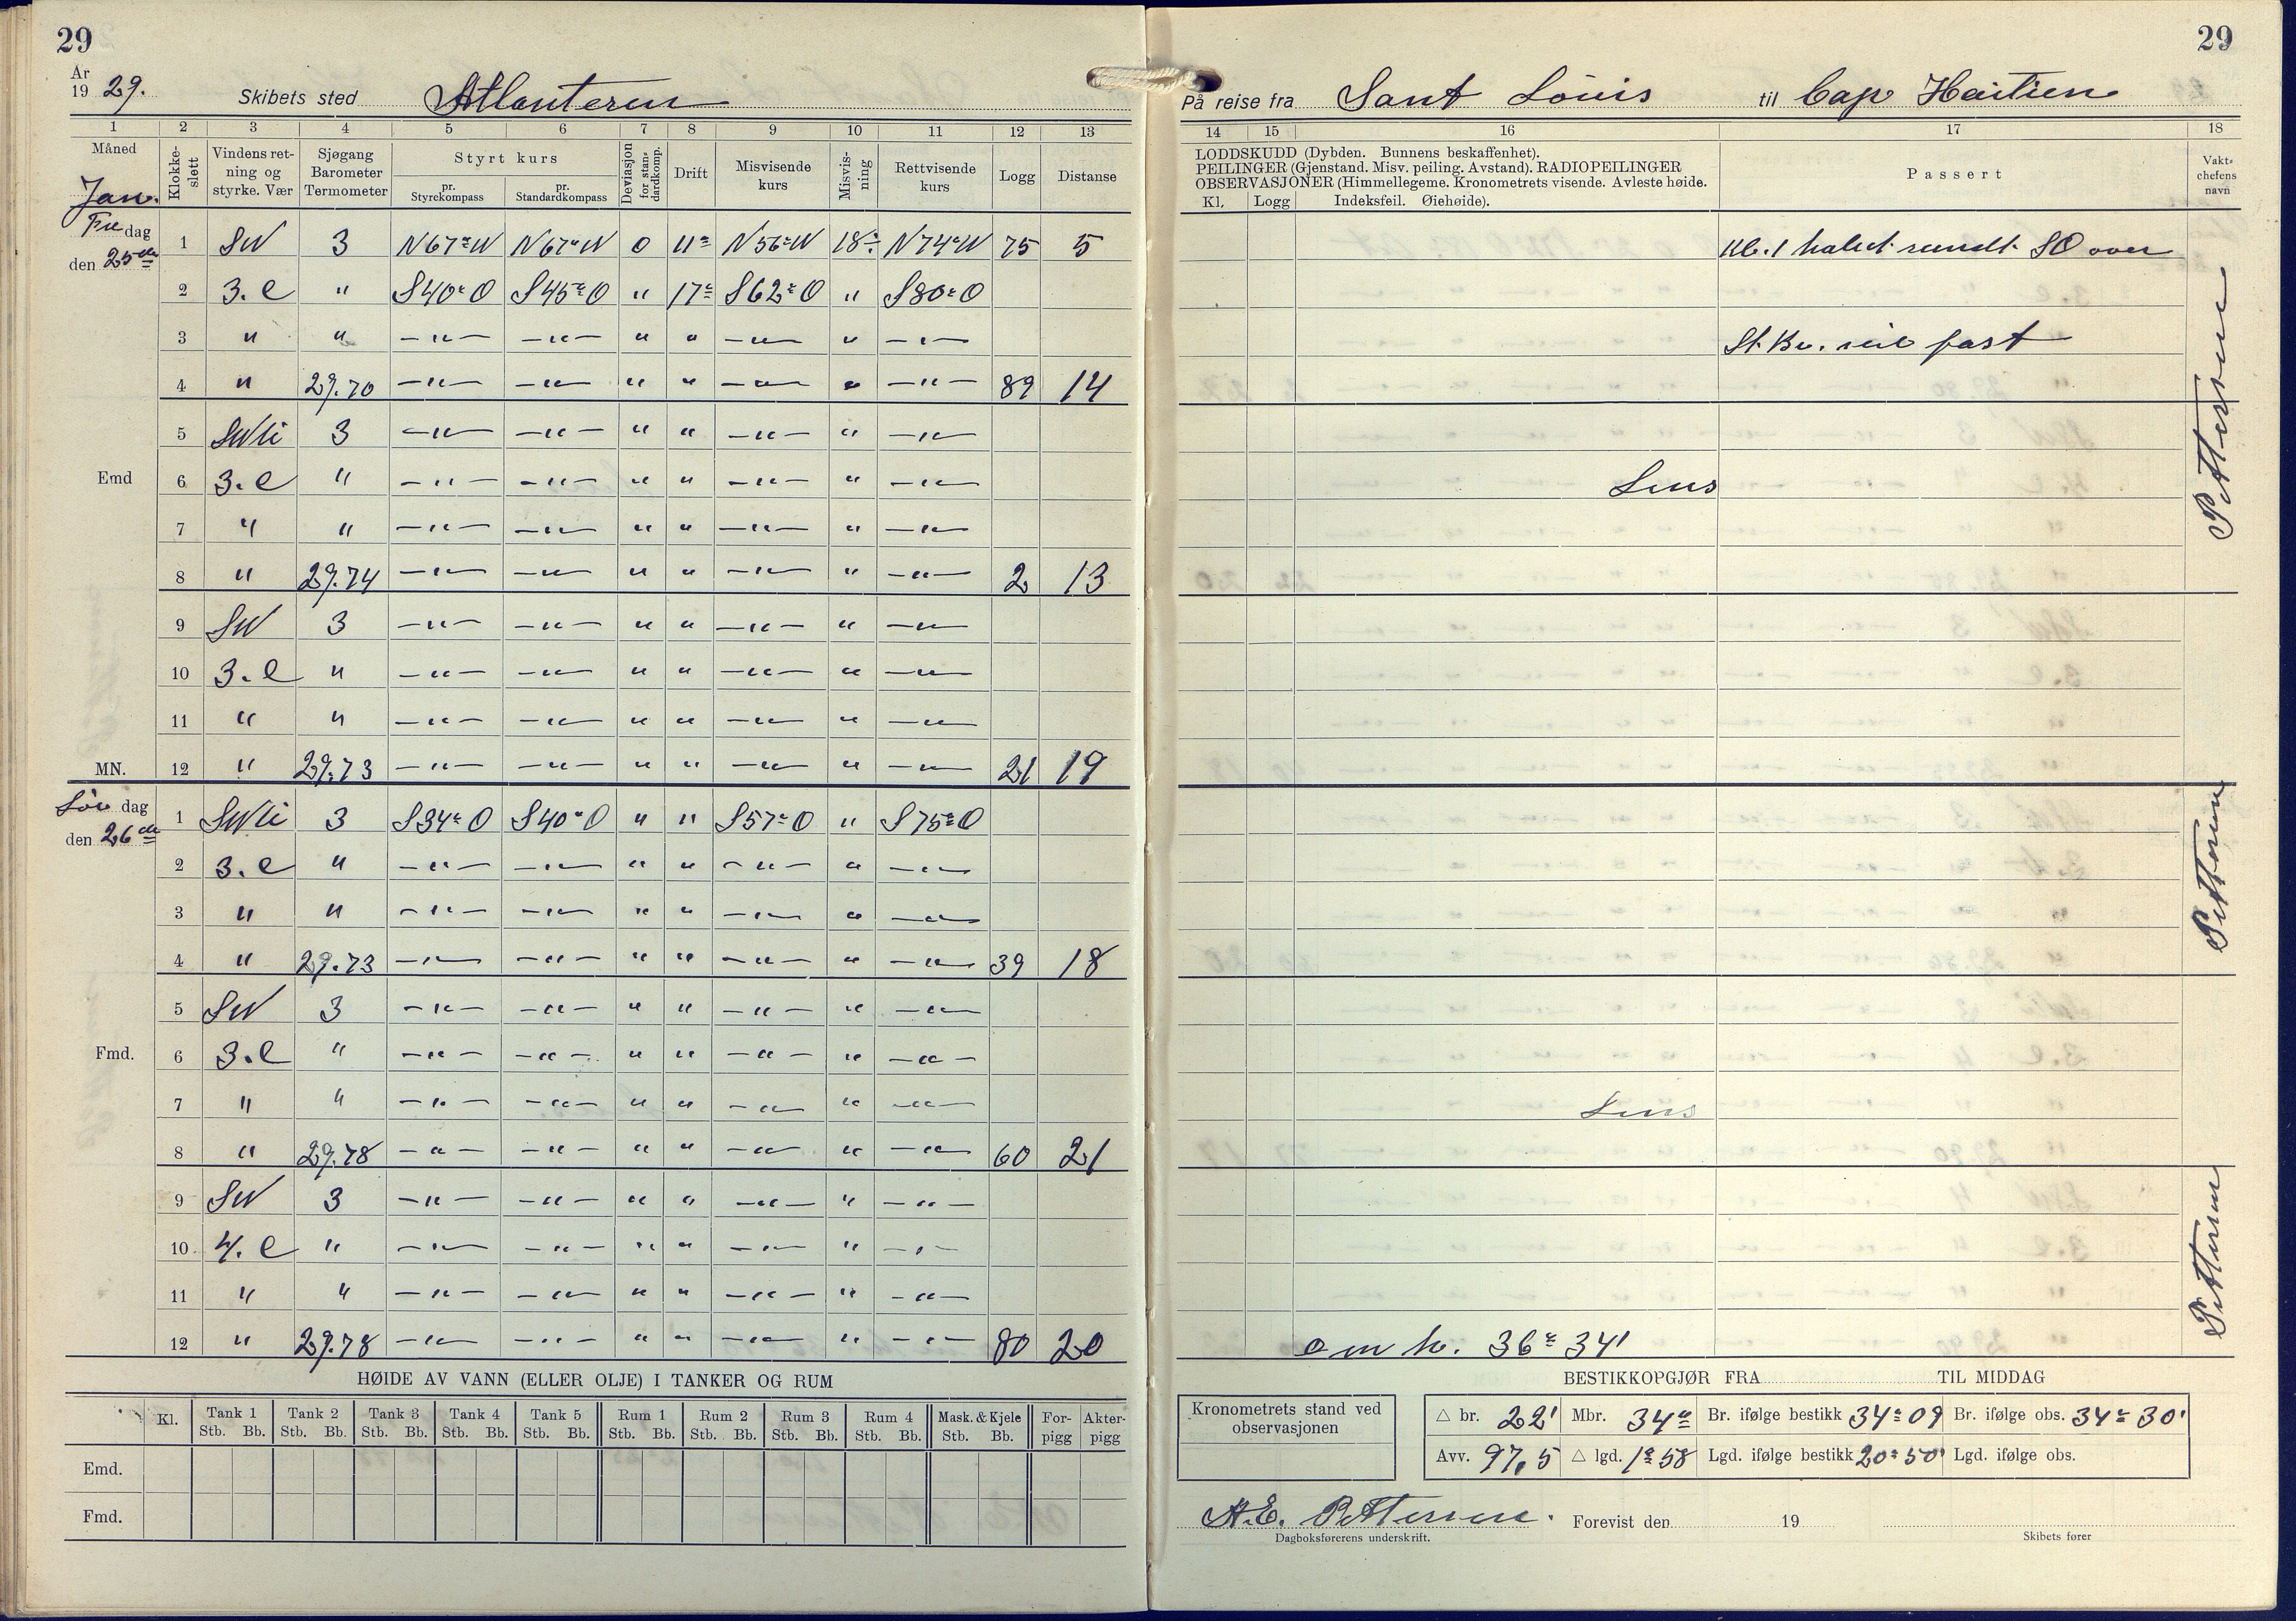 29
År 1929. Skibets sted Atlanteren
1 2 3 4 5 6 7 8 9 10 11 12 13
Måned Klokkeslett Vindens retning og styrke. Vær Sjøgang Barometer Termometer Styrt kurs pr. Styrekompass pr. Standardkompass Deviasjon for standardkomp. Drift Misvisende kurs Misvisning Rettvisende kurs Logg Distanse
Jan.
Fredag 1 SW 3 N67°W N67°W 0 11° N56°W 18° N74°W 75 5
den 25de
2 3. c " S40°O S45°O " 17° S62°O " S80°O
3 " " —"— —"— " " —"— " —"—
4 " 29.70 —"— —"— " " —"— " —"— 89 14
5 3 —"— —"— " " —"— " —"—
Emd 6 3. c " —"— —"— " " —"— " —"—
7 " " —"— —"— " " —"— " —"—
8 " 29.74 —"— —"— " " —"— " —"— 2 13
9 SW 3 —"— —"— " " —"— " —"—
10 3. c " —"— —"— " " —"— " —"—
11 " " —"— —"— " " —"— " —"—
MN. 12 " 29.73 —"— —"— " " —"— " —"— 21 19
Lør dag 1 3 S34°O S40°O " " S57°O " S75°O
den 26de
2 3. c " —"— —"— " " —"— " —"—
3 " " —"— —"— " " —"— " —"—
4 " 29.73 —"— —"— " " —"— " —"— 39 18
5 SW 3 —"— —"— " " —"— " —"—
Fmd. 6 3. c " —"— —"— " " —"— " —"—
7 " " —"— —"— " " —"— " —"—
8 " 29.78 —"— —"— " " —"— " —"— 60 21
9 SW 3 —"— —"— " " —"— " —"—
10 4. c " —"— —"— " " —"— " —"—
11 " " —"— —"— " " —"— " —"—
12 " 29.78 —"— —"— " " —"— " —"— 80 20
HØIDE AV VANN (ELLER OLJE) I TANKER OG RUM
Kl. Tank 1 Tank 2 Tank 3 Tank 4 Tank 5 Rum 1 Rum 2 Rum 3 Rum 4 Mask. & Kjele Forpigg Akterpigg
Stb. Bb. Stb. Bb. Stb. Bb. Stb. Bb. Stb. Bb. Stb. Bb. Stb. Bb. Stb. Bb. Stb. Bb. Stb. Bb.
Emd.
Fmd.
29
På reise fra Sant Louis til Cap Haitien
14 15 16 17 18
LODDSKUDD (Dybden. Bunnens beskaffenhet).
PEILINGER (Gjenstand. Misv. peiling. Avstand). RADIOPEILINGER
OBSERVASJONER (Himmellegeme. Kronometrets visende. Avleste høide.
Kl. Logg Indeksfeil. Øiehøide).
Passert
Vaktchefens navn
Kl. 1 halut rundt SO over
fast
Lens
Pettersen
Pettersen
Lens
Pettersen
o m h. 36° 34'
BESTIKKOPGJØR FRA TIL MIDDAG
Kronometrets stand ved observasjonen
△ br. 22' Mbr. 34° Br. ifølge bestikk 34° 09 Br. ifølge obs. 34° 30'
Avv. 97,5 △ lgd. 1° 58 Lgd. ifølge bestikk 20° 50' Lgd. ifølge obs.
A.E. Pettersen. Forevist den 19
Dagboksførerens underskrift. Skibets fører